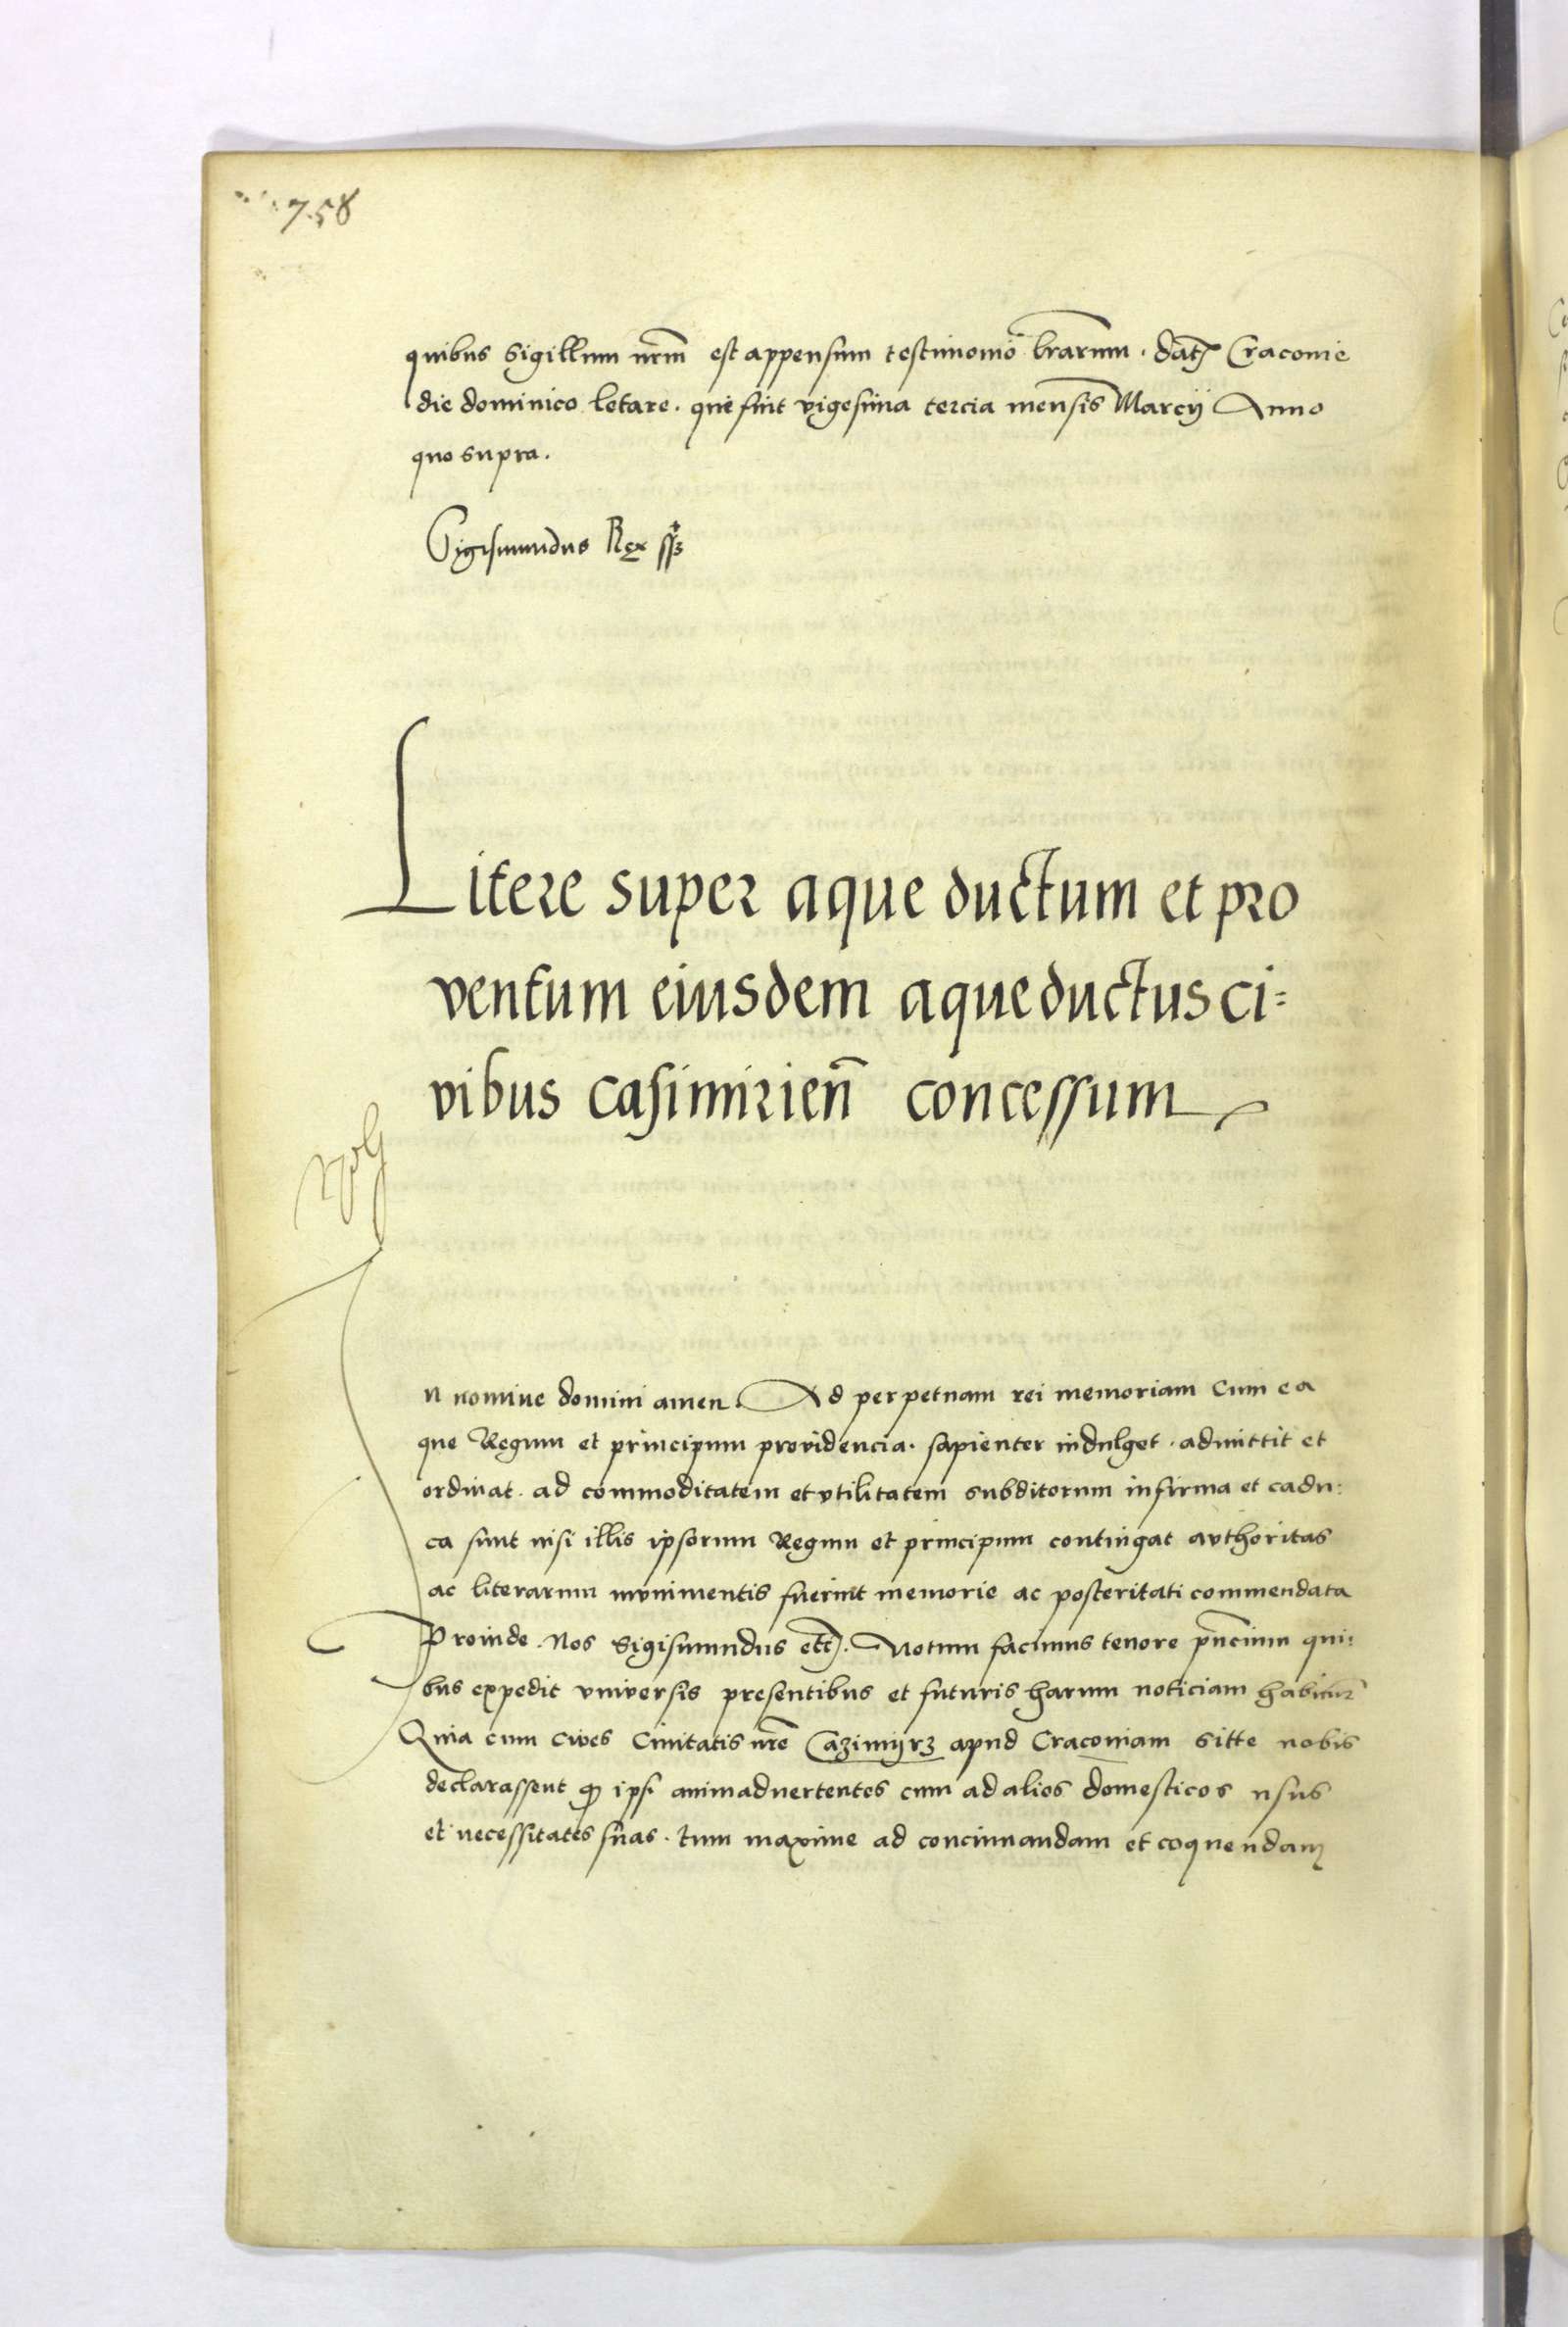 758
quibus Sigillum nrm̄ est appensum testimonio lr̄arum. dat̄ Cracovie
die dominico letare. que fuit vigesima tercia mensis Marcÿ Anno
quo supra.
Sigismundus Rex sst
Litere super aque ductum et pro
ventum eiusdem aqueductus ci=
vibus casimirien̄ concessum
n nomine domini amen. Ad perpetuam rei memoriam Cum ea
que Regum et principum providencia. sapienter indulget. admittit et
ordinat. ad commoditatem et vtilitatem subditorum infirma et cadu:
ca sunt nisi illis ipsorum Regum et principum contingat avthoritas
ac literarum monimentis fuerint memorie ac posteritati commendata
Proinde. Nos Sigismundus etc̄. Notum facimus tenore pn̄cium qui:
bus expedit vniversis presentibus et futuris harum noticiam habitur̄
Quia cum Cives Civitatis nr̄e Cazimijrz apud Cracoviam sitte nobis
declarassent qꝫ ipsi animadvertentes cum ad alios domesticos usus
et necessitates suas. tum maxime ad concinnandam et coquendam